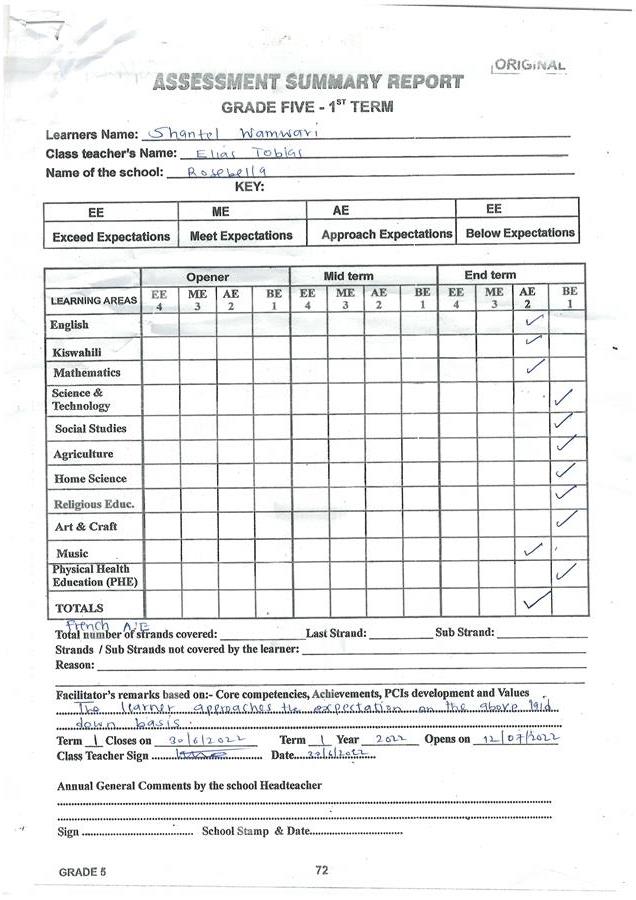 ORIGINAL
ASSESSMENT SUMMARY REPORT
GRADE FIVE - 1ST TERM
Learners Name: Shantel Wamwari
Class teacher's Name: Elias Tobias
Name of the school: Rosebella
KEY:
EE ME AE EE
Exceed Expectations Meet Expectations Approach Expectations Below Expectations
Opener Mid term End term
LEARNING AREAS EE 4 ME 3 AE 2 BE 1 EE 4 ME 3 AE 2 BE 1 EE 4 ME 3 AE 2 BE 1
English ✓
Kiswahili ✓
Mathematics ✓
Science &
Technology ✓
Social Studies ✓
Agriculture ✓
Home Science ✓
Religious Educ. ✓
Art & Craft ✓
Music ✓
Physical Health
Education (PHE) ✓
TOTALS ✓
French A.E
Total number of strands covered: Last Strand: Sub Strand:
Strands / Sub Strands not covered by the learner:
Reason:
Facilitator's remarks based on:- Core competencies, Achievements, PCIs development and Values
The learner approaches the expectation on the above laid
down basis.
Term 1 Closes on 30/6/2022 Term 1 Year 2022 Opens on 12/07/2022
Class Teacher Sign Date 30/6/2022
Annual General Comments by the school Headteacher
Sign School Stamp & Date
GRADE 5 72